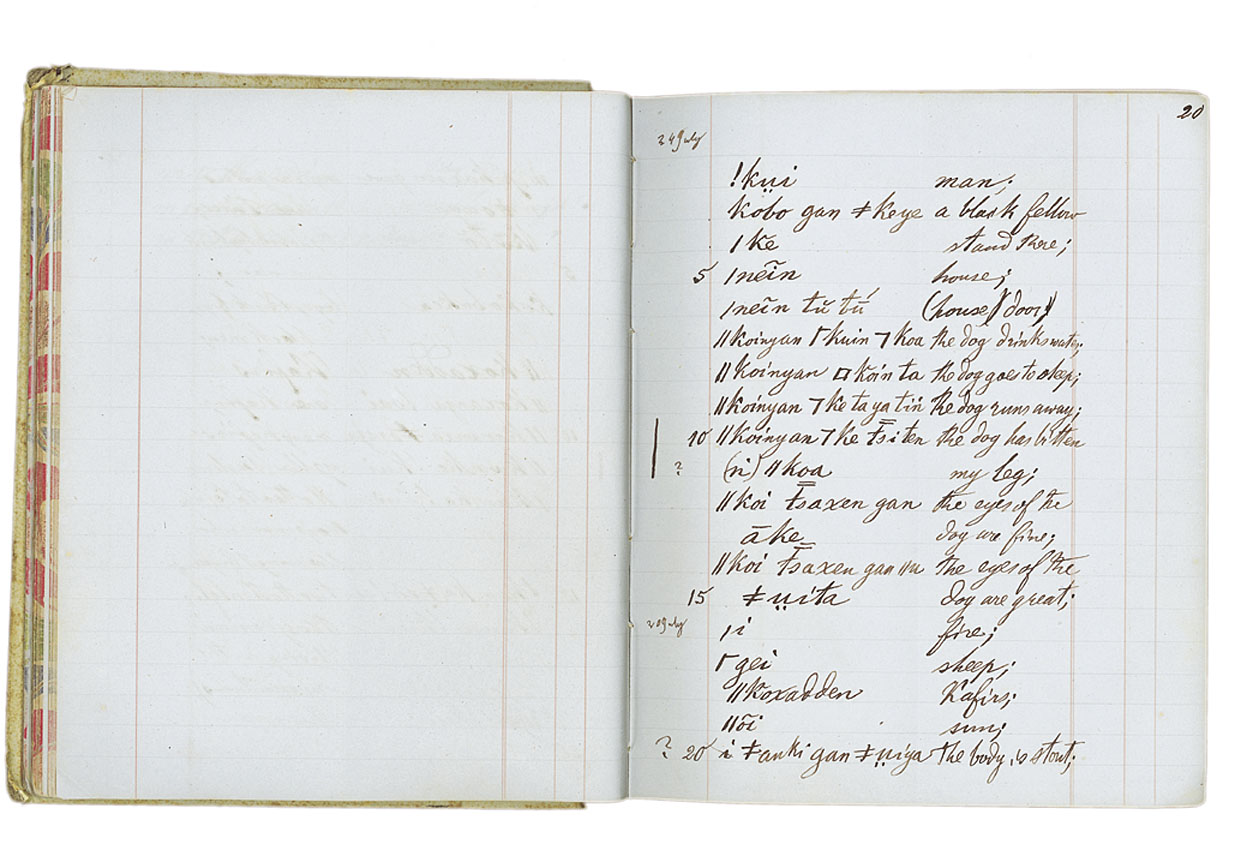 20
24 July
!kṳi man;
kobo gan ǂkeye a black fellow
ǀke stand there;
5 ǀneĩn house;
ǀneĩn tŭ tū́ (house)(door)
ǁkoinyan ⌈kuin ⌉koa the dog drinks water;
ǁkoinyan □koin ta the dog goes to sleep;
ǁkoinyan ⌉ke ta ya tiń the dog runs away;
10 ǁkoinyan ⌉ke t̄siten the dog has bitten
? (n) ǁkoa my leg;
ǁkoi t̄saxen gan the eyes of the
āke dog are fine;
ǁkoi t̄saxen gan the eyes of the
15 ǂṳita dog are great;
ǀi fire;
⌈gei sheep;
ǁkoxadden Kafirs;
ǁõi sun;
? 20 i ǂanki gan ǂṳiya the body is stout;